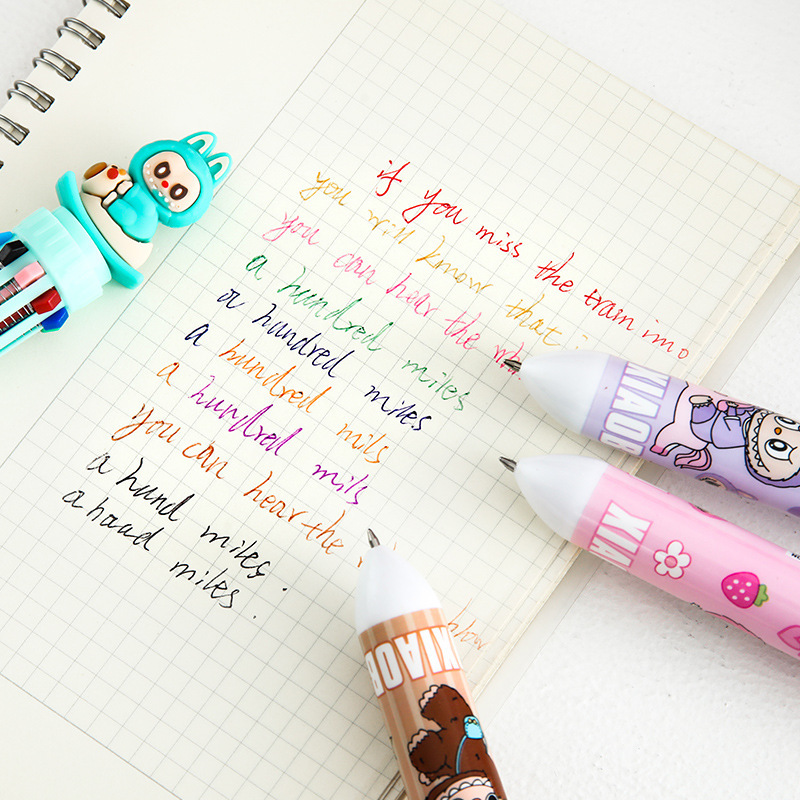 if you miss the train imo
you will know that
you can hear the wh
a hundred miles
a hundred miles
a hundred mils
a hundred mils
you can hear the
a hund miles.
a haad miles.
blow
XIAOB
XIA
XIAOB